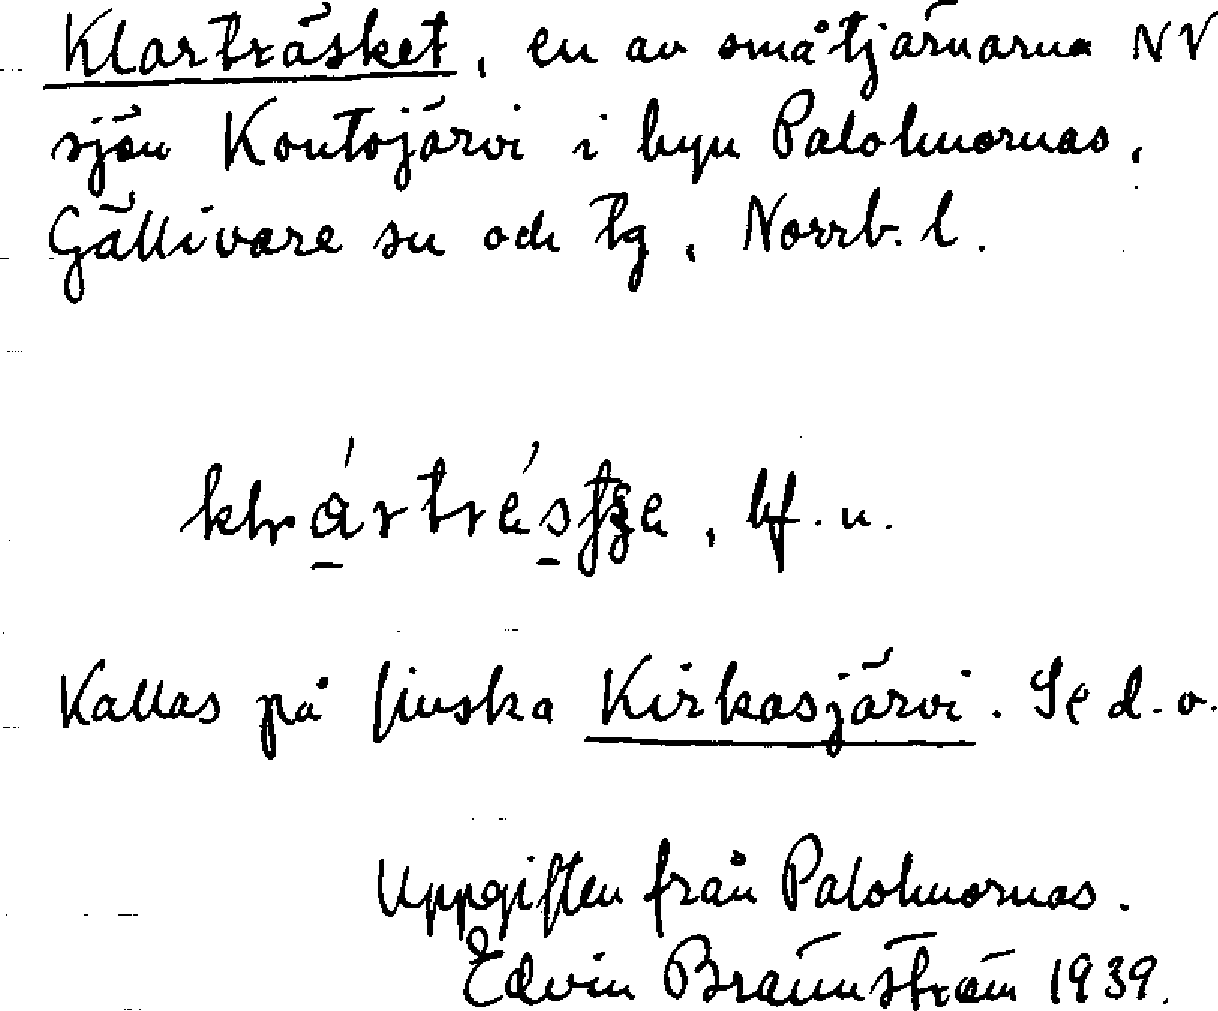 Klarträsket, en av småtjärnarna NV
sjön Kontojärvi i byn Palohuornas,
Gällivare sn och tg, Norrb. l.
bf. n.
Kallas på finska Kirkasjärvi. Se d. o.
Uppgiften från Palohuornas.
Edvin Brännström 1939.